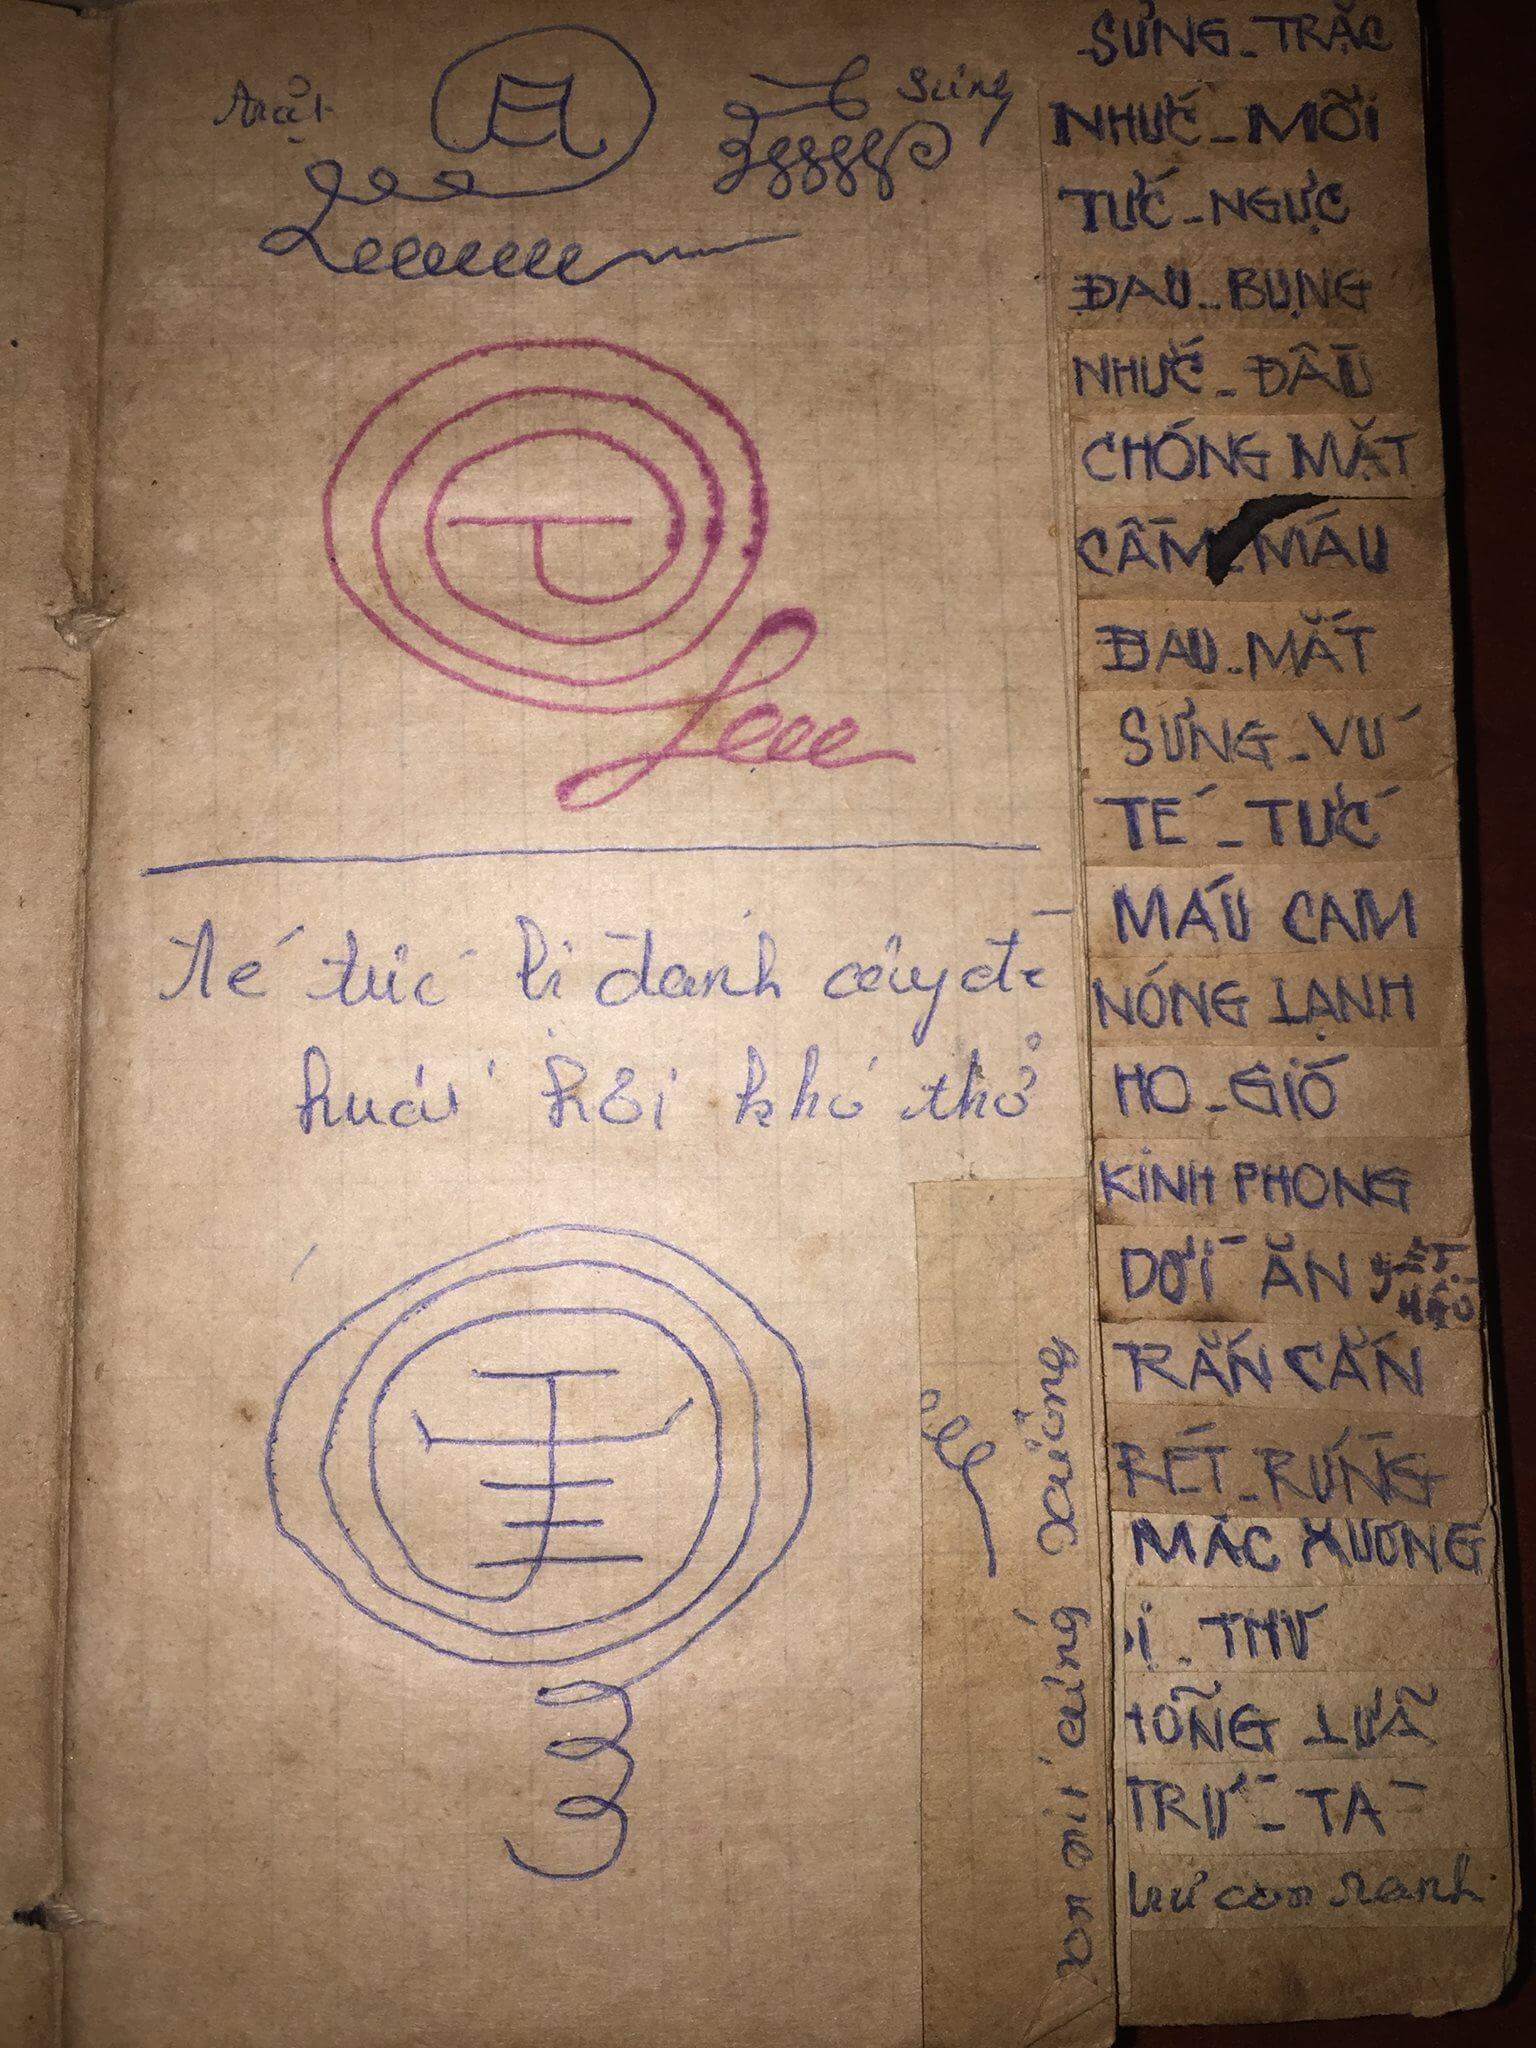 trật
sưng
té tức bị đánh cây đè
huấi hơi khó thở
xuống
cứng
SƯNG - TRẶC
NHỨC - MÕI
TỨC - NGỰC
ĐAU - BỤNG
NHỨC - ĐẦU
CHÓNG MẶT
CẦM - MÁU
ĐAU - MẮT
SƯNG - VÚ
TÉ - TỨC
MÁU CAM
NÓNG LẠNH
HO - GIÓ
KINH PHONG
DƠI ĂN YẾT HẦU
RẮN CẮN
RÉT - RỪNG
MẮC XƯƠNG
THƯ
LỮA
TRỪ - TÀ
trừ con ranh